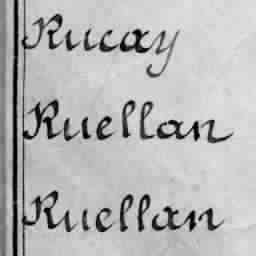 Rucay
Ruellan
Ruellan